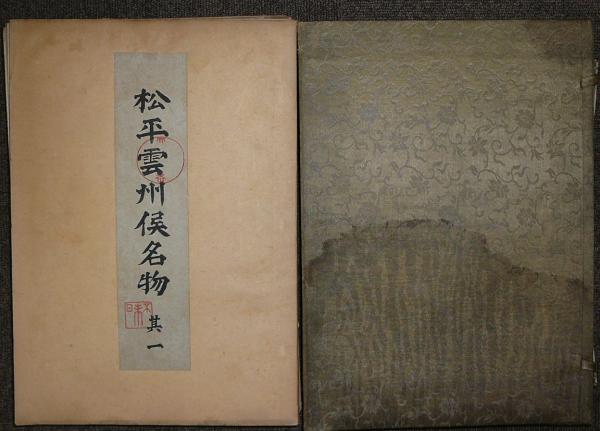 松平雲州侯名物
其一